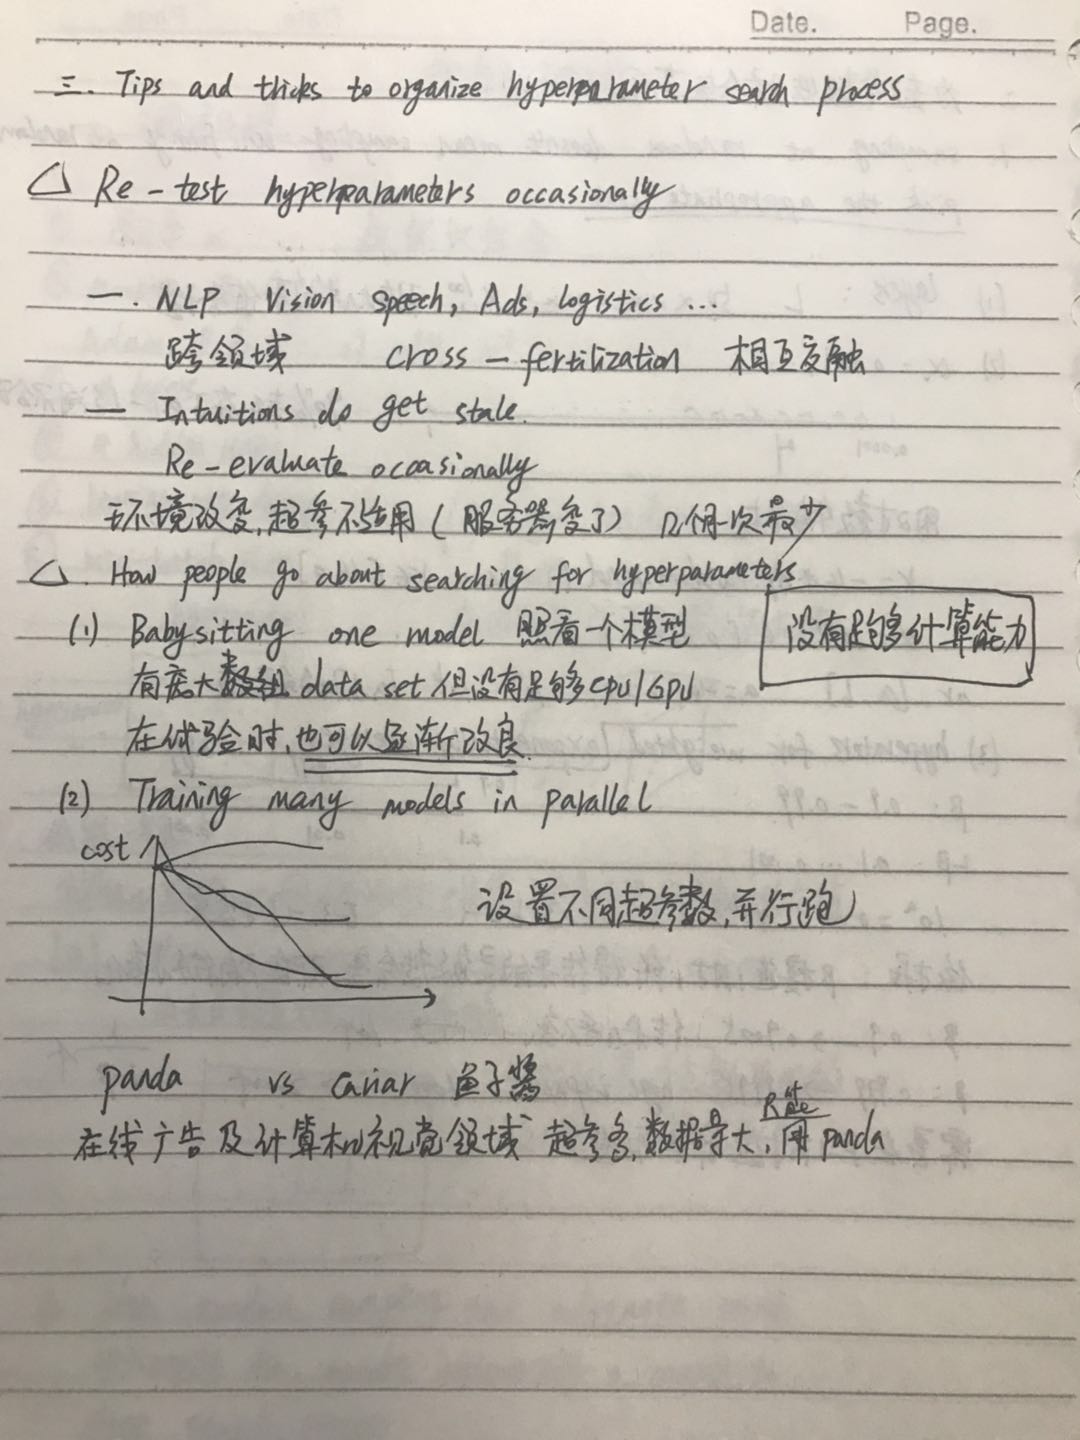 Date. Page.
三. Tips and tricks to organize hyperparameter search process
△ Re-test hyperparameters occasionally
一. NLP Vision speech, Ads, logistics ...
跨领域 cross-fertilization 相互交融
— Intuitions do get stale.
Re-evaluate occasionally
环境改变,超参不适用(服务器变了) 几个月一次最少
△. How people go about searching for hyperparameters
(1) Babysitting one model 照看一个模型
没有足够计算能力
有庞大数组 data set 但没有足够CPU/GPU
在试验时,也可以逐渐改良.
(2) Training many models in parallel
cost
设置不同超参数,并行跑
panda vs caviar 鱼子酱
在线广告及计算机视觉领域 超参多,数据量大,只能用panda